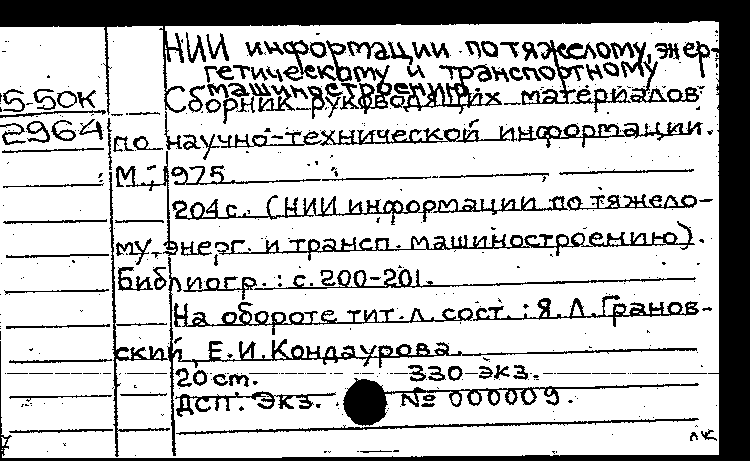 НИИ информации по тяжелому, энер-
гетическому и транспортному
машиностроению.
5-50К
Сборник руководящих материалов
2964
по научно-технической информации.
М., 1975.
204 с. (НИИ информации по тяжело-
му, энерг. и трансп. машиностроению).
Библиогр.: с. 200-201.
На обороте тит. л. сост.: Я. Л. Гранов-
ский, Е. И. Кондаурова.
20 ст. 330 экз.
ДСП. Экз. № 000009.